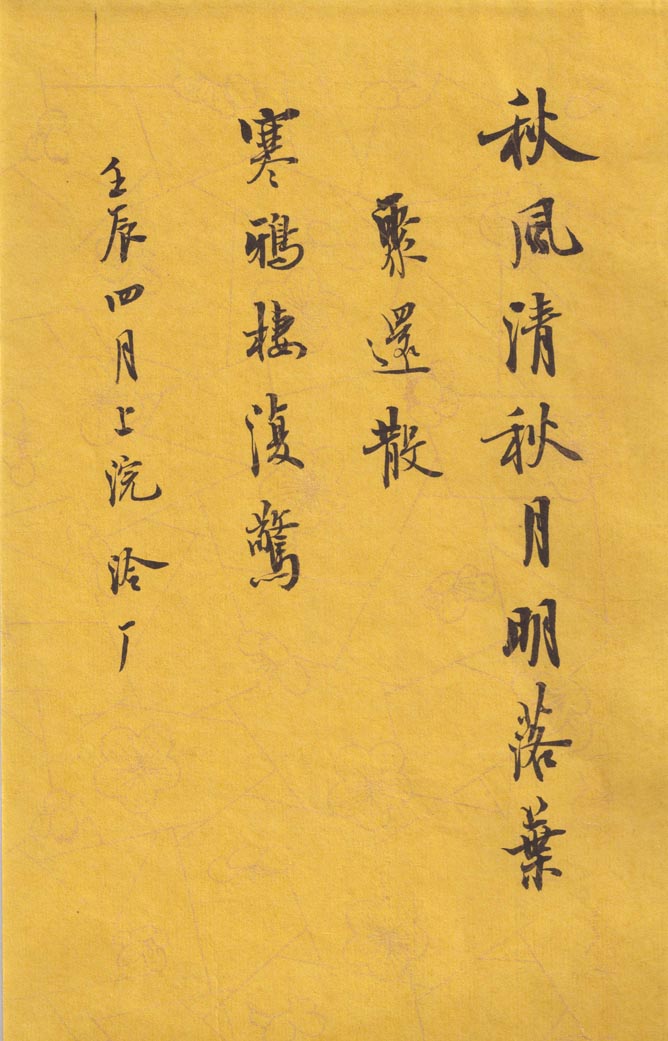 秋風清秋月明落葉
聚還散
寒鴉棲復驚
壬辰四月上浣 泠丁